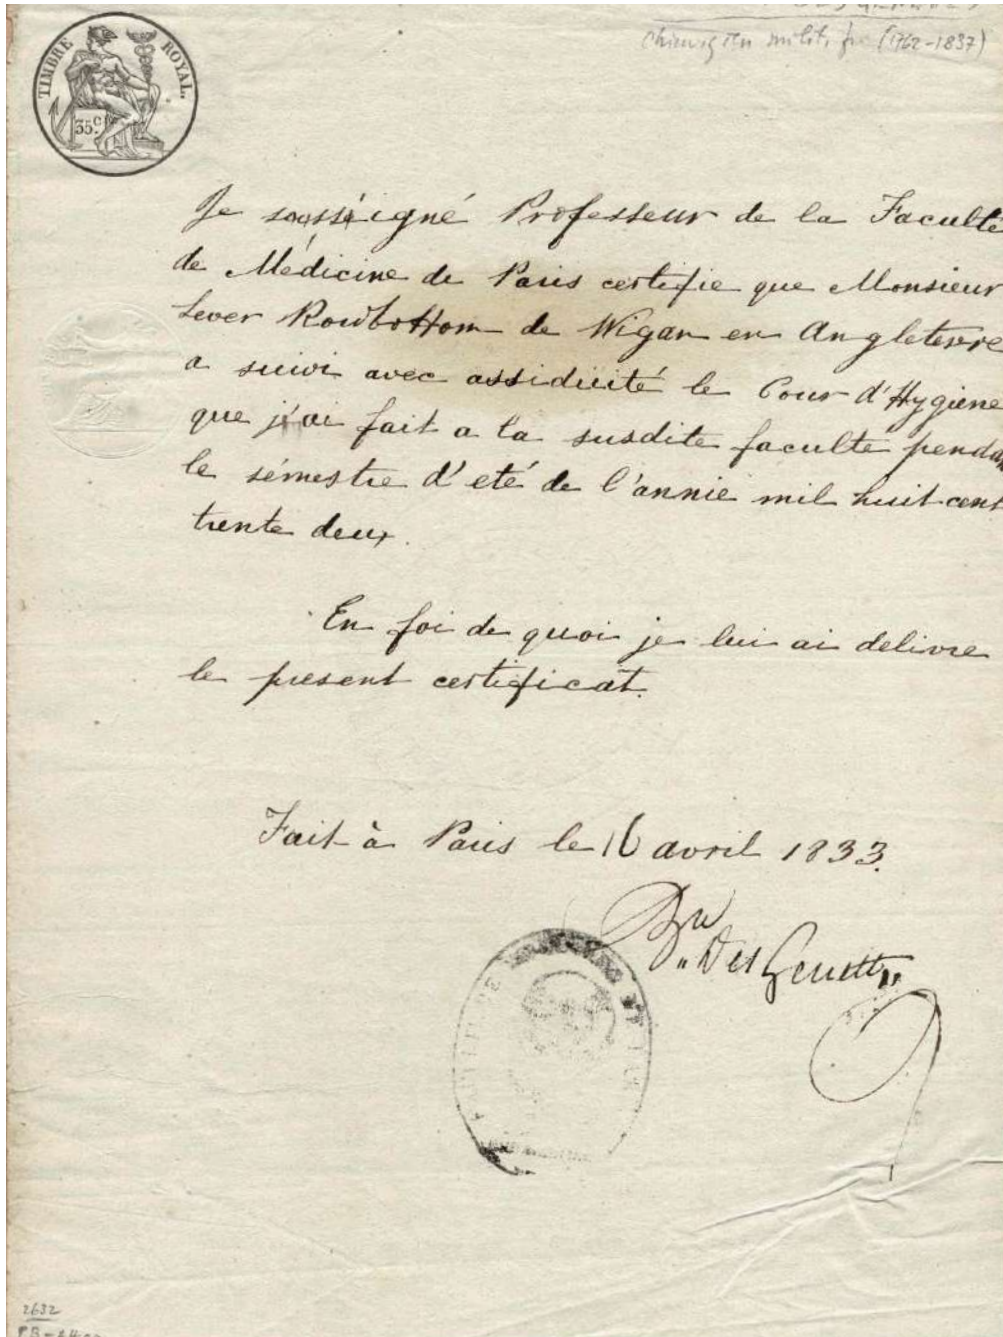 TIMBRE ROYAL.
35c.
(1762-1837)
Je soussigné Professeur de la Faculté
de Médicine de Paris certifie que Monsieur
Lever Rowbottom de Wigan en Angleterre
a suivi avec assiduité le Cour d'Hygiène
que j'ai fait a la susdite faculte pendan
le sémestre d'eté de l'annie mil huit cent
trente deux.
En foi de quoi je lui ai delivre
le present certificat.
Fait à Paris le 16 avril 1833.
Bon
DesGenettes
2632